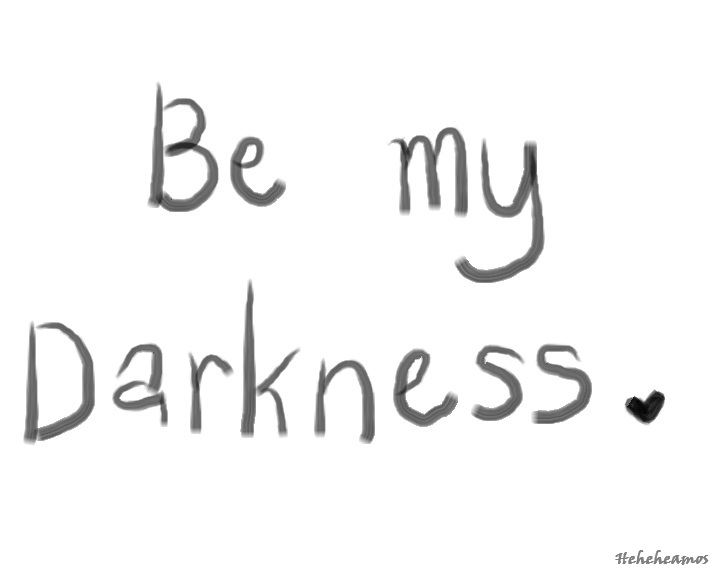 Be my
Darkness.
Heheheamos